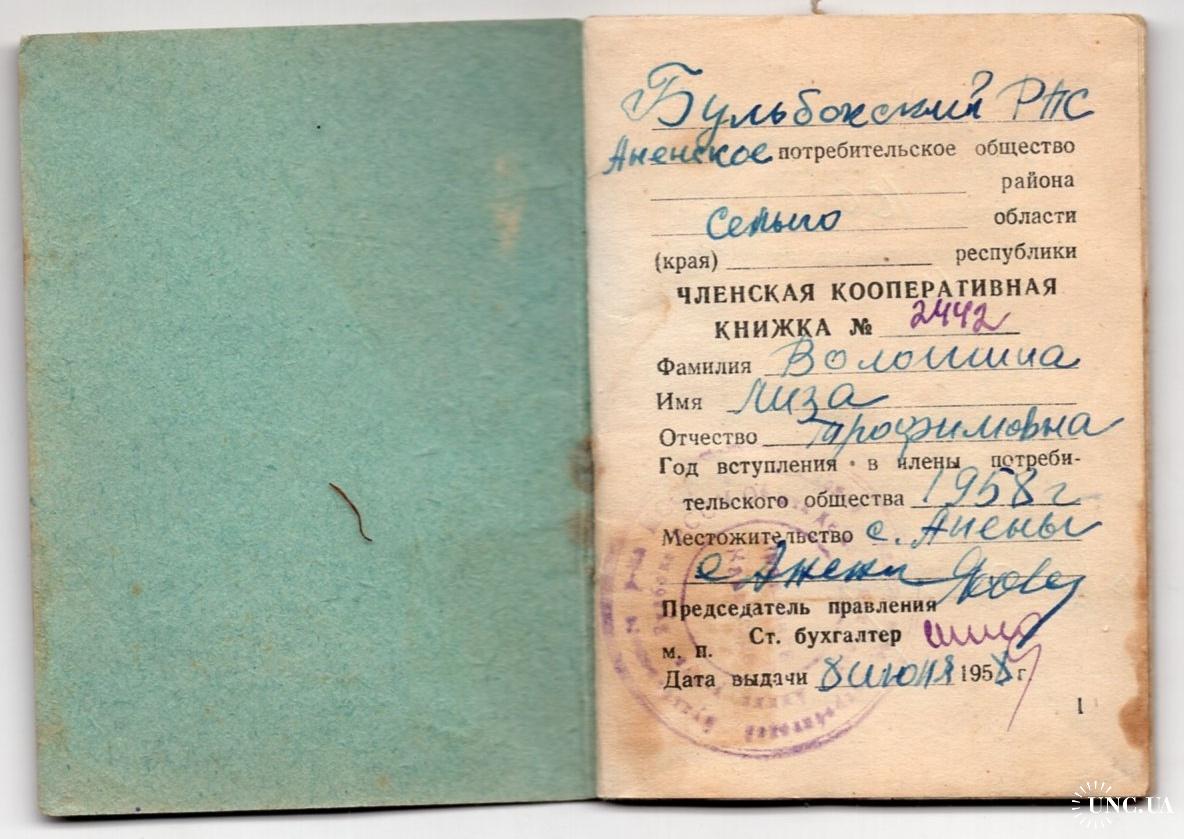 Бульбокский РПС
Аненское потребительское общество
района
Сельпо области
(край) республики
ЧЛЕНСКАЯ КООПЕРАТИВНАЯ
КНИЖКА № 2442
Фамилия Волошина
Имя Лиза
Отчество Трофимовна
Год вступления в члены потреби-
тельского общества 1958 г
Местожительство с. Анены
с Анени
Председатель правления
Ст. бухгалтер
м. п.
Дата выдачи 8 июня 1958 г.
1
UNC.UA